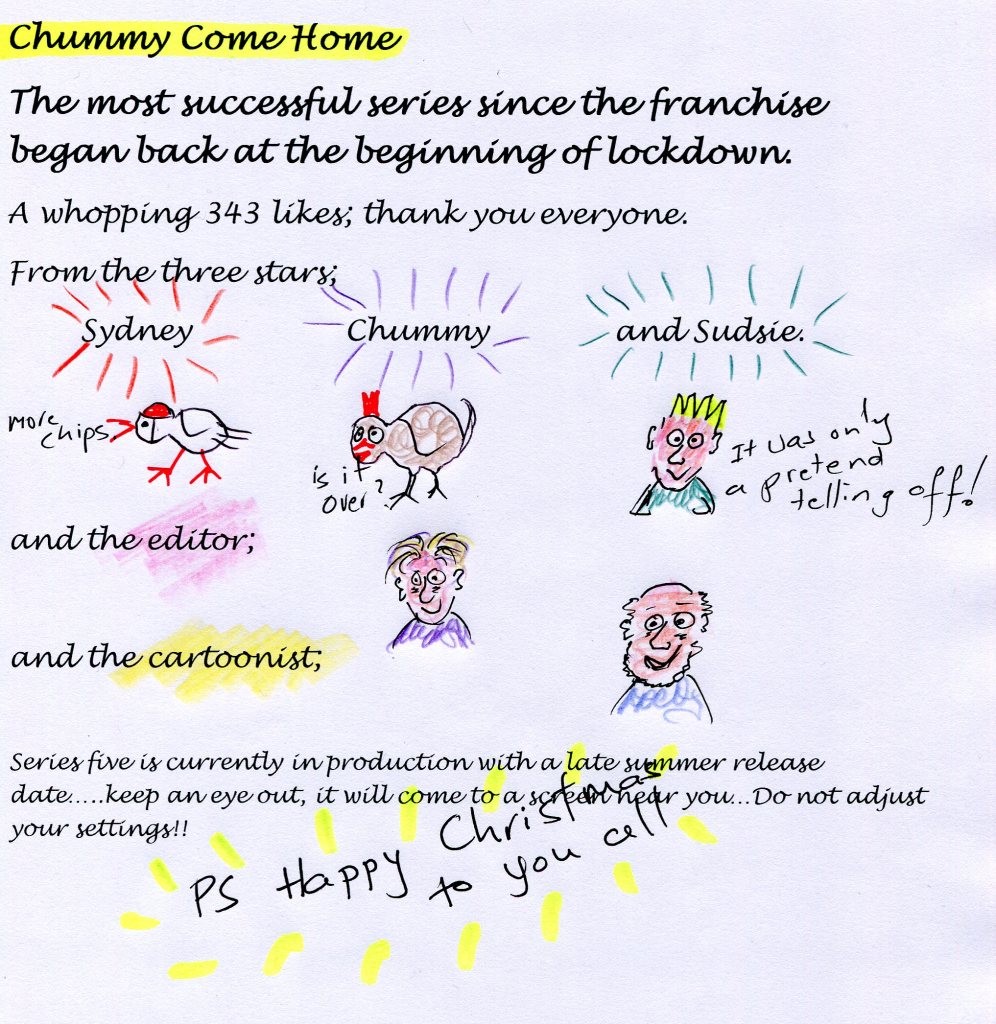 Chummy Come Home
The most successful series since the franchise
began back at the beginning of lockdown.
A whopping 343 likes; thank you everyone.
From the three stars;
Sydney Chummy and Sudsie.
more
chips
is it
over?
It was only
a pretend
telling off!
and the editor;
and the cartoonist;
Series five is currently in production with a late summer release
date.....keep an eye out, it will come to a screen near you...Do not adjust
your settings!!
PS Happy Christmas
to you all